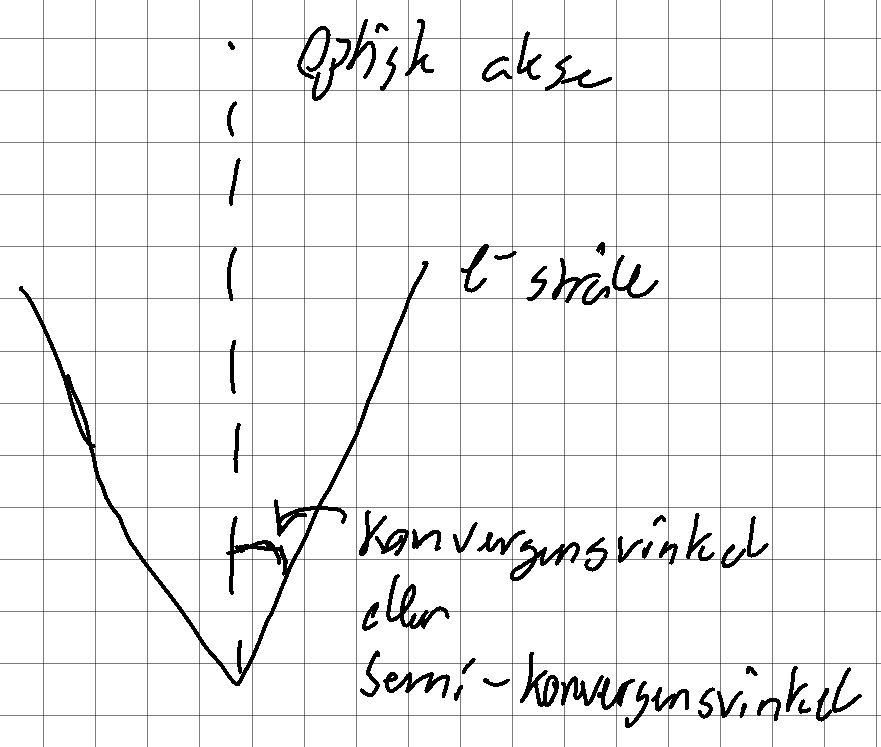 Optisk akse
e- stråle
Konvergensvinkel
eller
Semi-konvergensvinkel